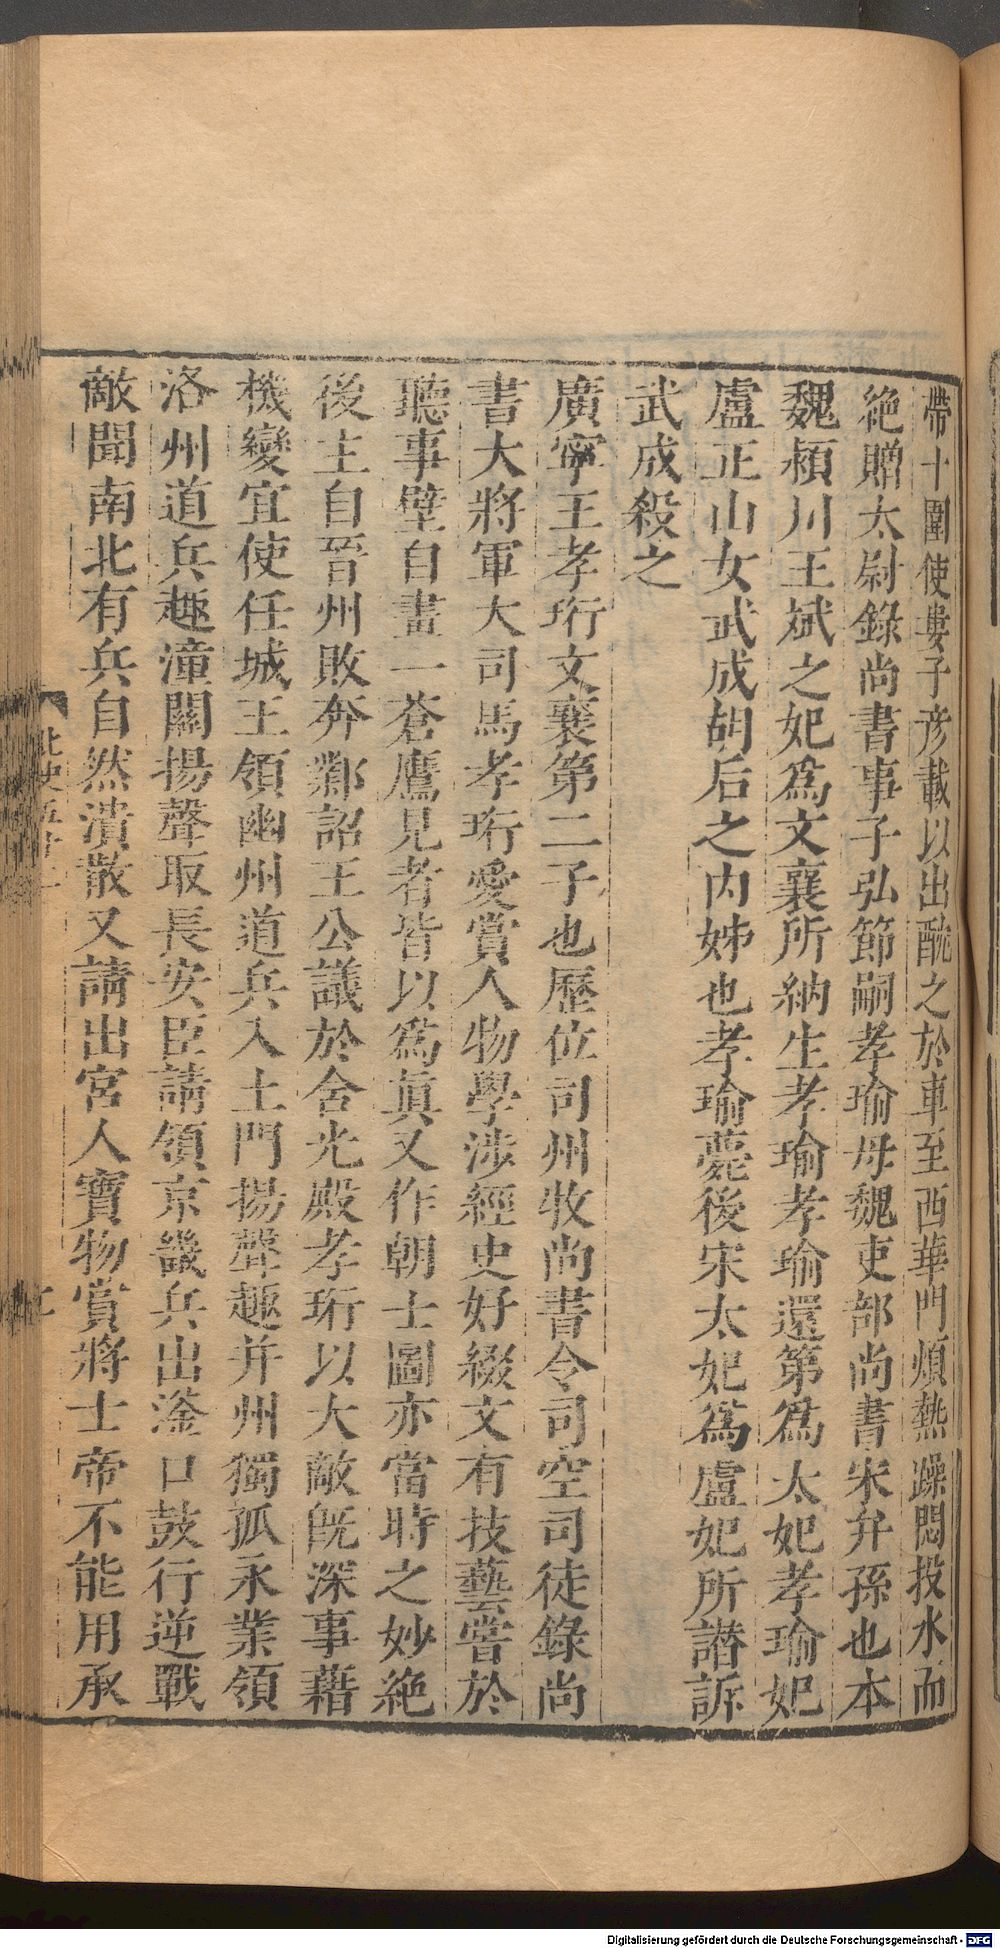 帶十圍使婁子彥載以出酖之於車至西華門煩熱躁悶投水而
絶贈太尉錄尚書事子弘節嗣孝瑜母魏吏部尚書宋弁孫也本
魏潁川王斌之妃爲文襄所納生孝瑜孝瑜還第爲太妃孝瑜妃
盧正山女武成胡后之內姊也孝瑜薨後宋太妃爲盧妃所譖訴
武成殺之
廣寧王孝珩文襄第二子也歷位司州牧尚書令司空司徒錄尚
書大將軍大司馬孝珩愛賞人物學涉經史好綴文有技藝嘗於
聽事壁自畫一蒼鷹見者皆以爲眞又作朝士圖亦當時之妙絶
後主自晉州敗奔鄴詔王公議於含光殿孝珩以大敵旣深事藉
機變宜使任城王領幽州道兵入土門揚聲趣并州獨孤永業領
洛州道兵趣潼關揚聲取長安臣請領京畿兵出滏口鼓行逆戰
敵聞南北有兵自然潰散又請出宮人寶物賞將士帝不能用承
北史五十二
Digitalisierung gefördert durch die Deutsche Forschungsgemeinschaft - DFG